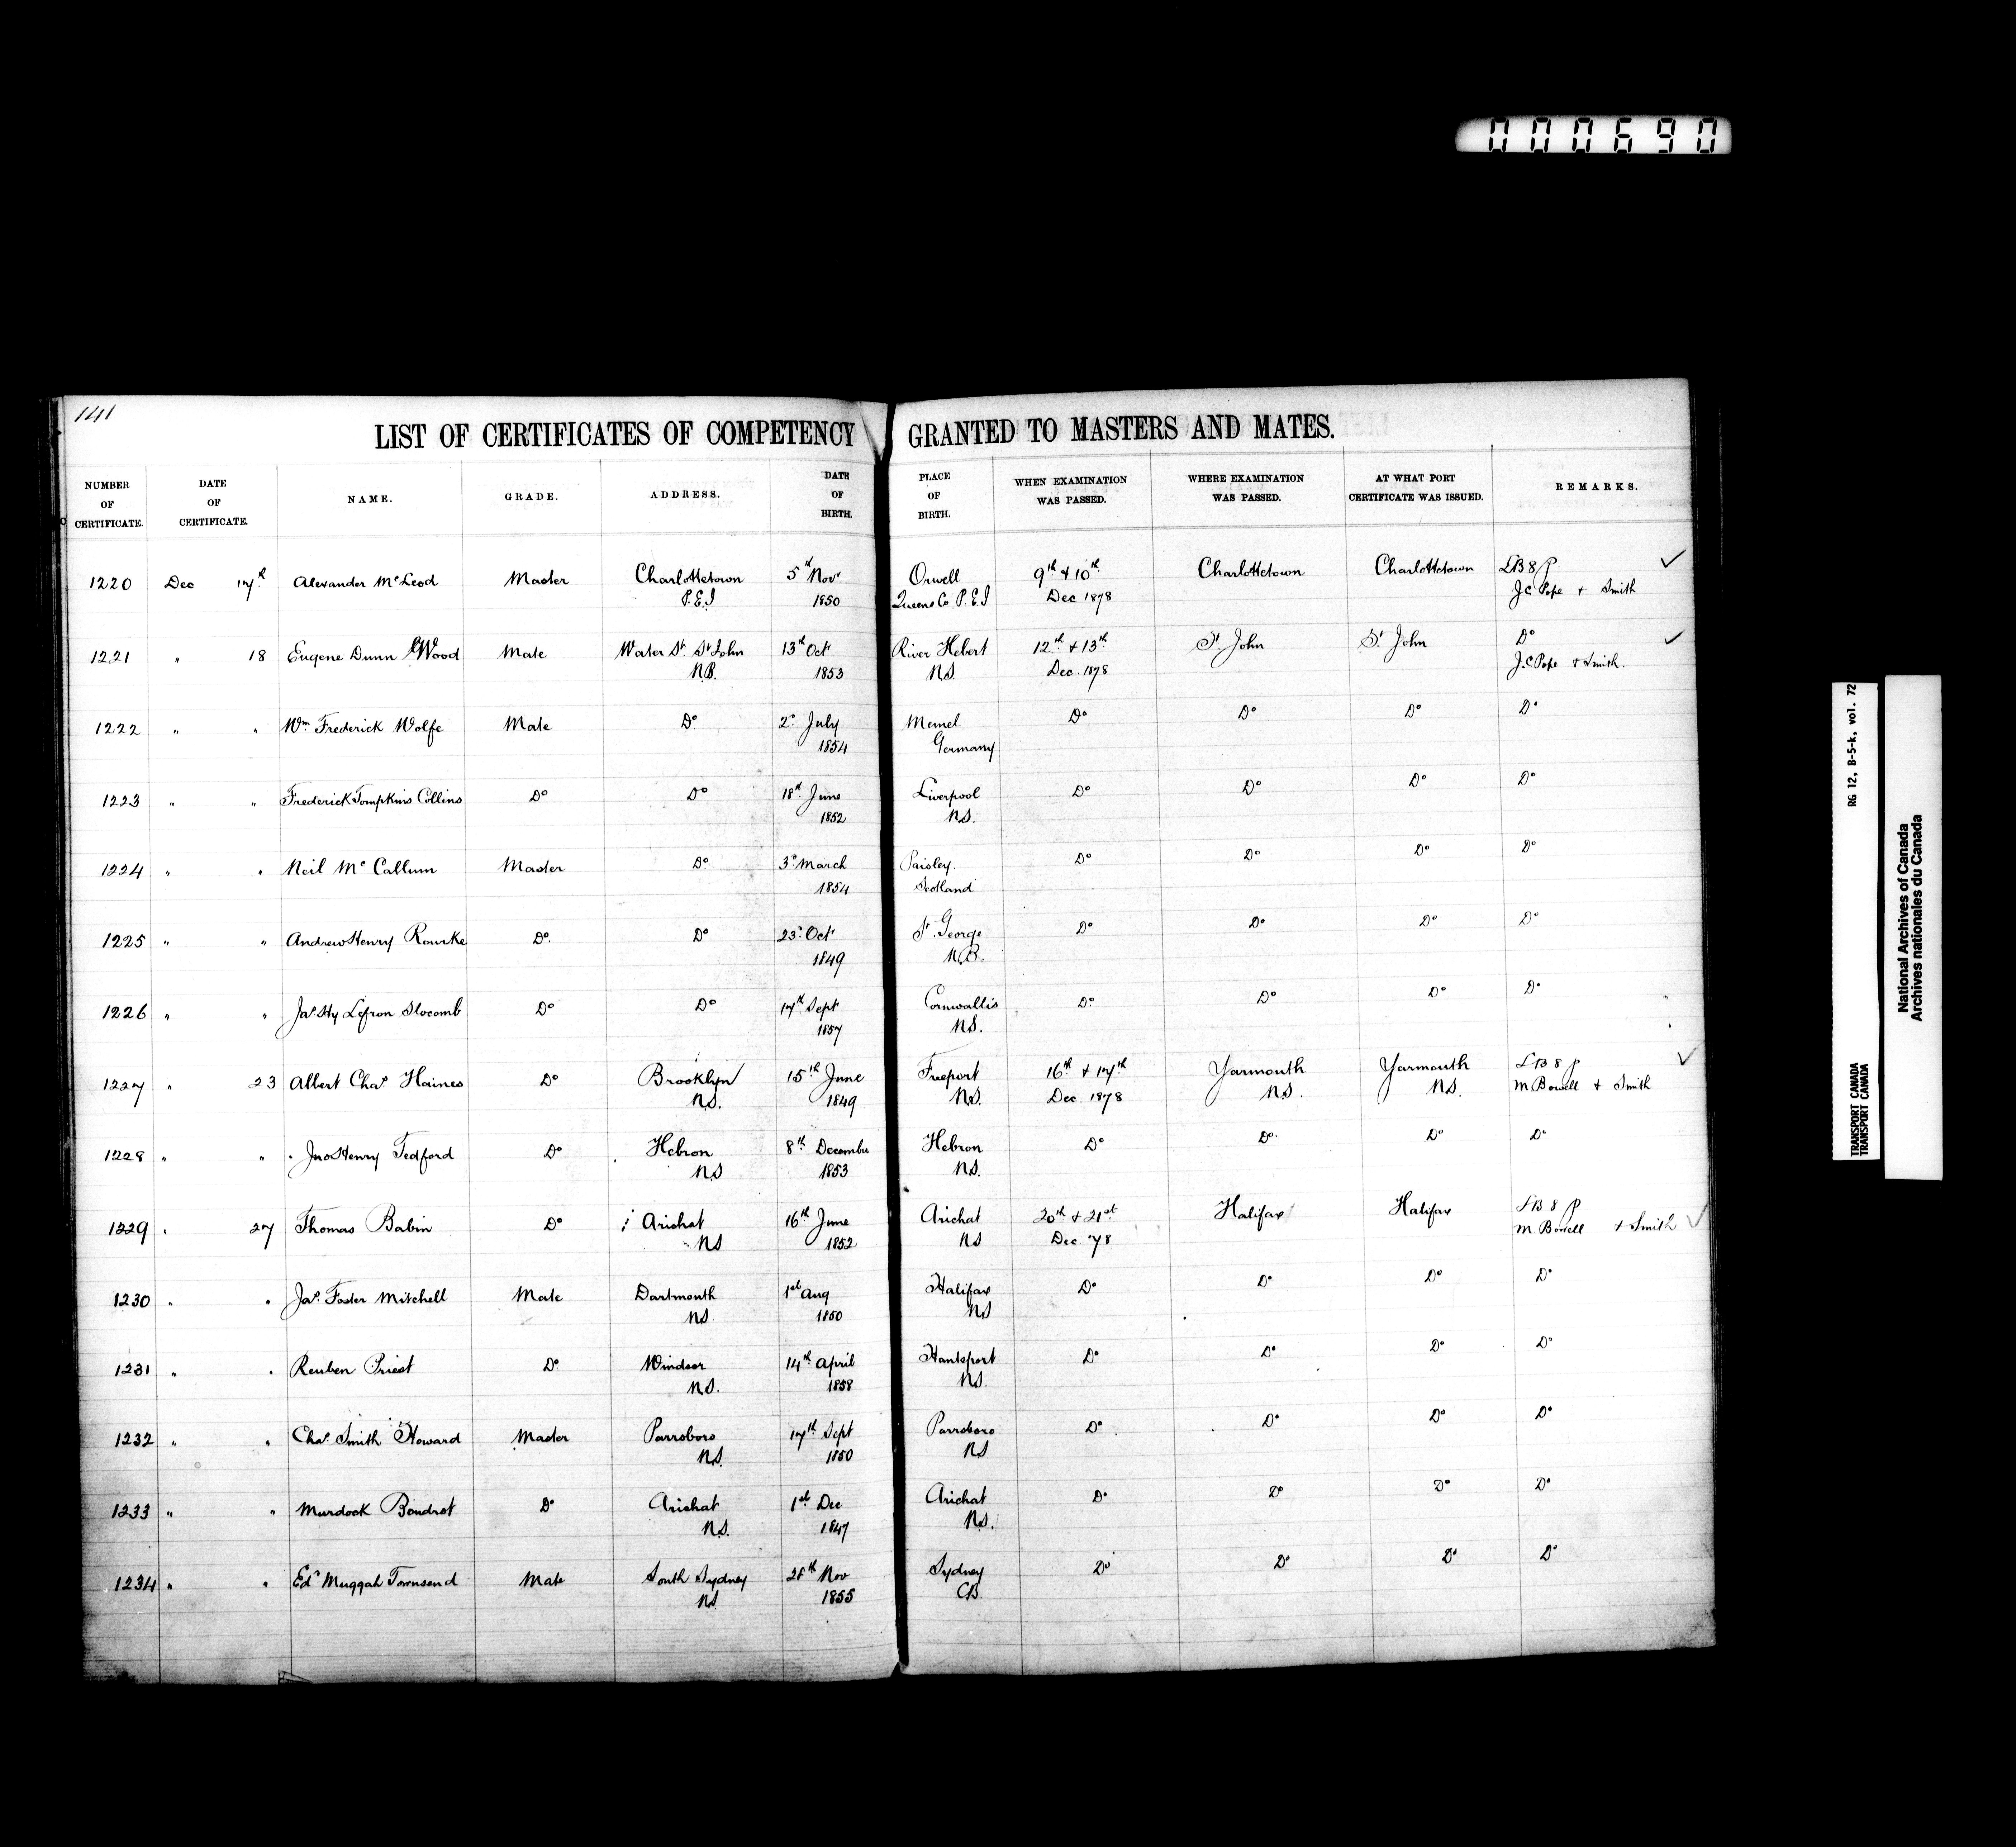 000690
141
LIST OF CERTIFICATES OF COMPETENCY GRANTED TO MASTERS AND MATES.
NUMBER OF CERTIFICATE. DATE OF CERTIFICATE. NAME. GRADE. ADDRESS. DATE OF BIRTH. PLACE OF BIRTH. WHEN EXAMINATION WAS PASSED. WHERE EXAMINATION WAS PASSED. AT WHAT PORT CERTIFICATE WAS ISSUED. REMARKS.
1220 Dec 17th Alexander McLeod Master Charlottetown 5th Nov Orwell 9th + 10th Charlottetown Charlottetown LB 8 p ✓
P.E.I 1850 Queens Co. P.E.I Dec 1878 J.C. Pope + Smith
1221 " 18 Eugene Dunn Wood Mate Water St. St John 13th Oct River Hebert 12th + 13th St. John St. John Do ✓
N.B. 1853 N.S. Dec. 1878 J.C. Pope + Smith.
1222 " " Wm Frederick Wolfe Mate Do 2d July Memel Do Do Do Do
1854 Germany
1223 " " Frederick Tompkins Collins Do Do 18th June Liverpool Do Do Do Do
1852 N.S.
1224 " " Neil McCallum Master Do 3d March Paisley. Do Do Do Do
1854 Scotland
1225 " " Andrew Henry Rourke Do. Do 23d Oct St. George Do Do Do Do
1849 N.B.
1226 " " Jas Hy Slocomb Do Do 17th Sept Cornwallis Do Do Do Do
1857 N.S.
1227 " 23 Albert Chas Haines Do Brooklyn 15th June Freeport 16th + 17th Yarmouth Yarmouth LB 8 p ✓
N.S. 1849 N.S. Dec. 1878 N.S. N.S. M Bowell + Smith
1228 " " Jno Henry Tedford Do Hebron 8th December Hebron Do Do Do Do
N.S 1853 N.S.
1229 " 27 Thomas Babin Do Arichat 16th June Arichat 20th + 21st Halifax Halifax LB 8 p
NS 1852 NS Dec '78 M. Bowell + Smith ✓
1230 " " Jas. Foster Mitchell Mate Dartmouth 1st Aug Halifax Do Do Do Do
NS 1850 NS
1231 " " Reuben Priest Do Windsor 14th April Hantsport Do Do Do Do
N.S. 1858 N.S.
1232 " " Chas. Smith Howard Master Parrsboro 17th Sept Parrsboro Do Do Do Do
N.S. 1850 NS
1233 " " Murdock Boudrot Do Arichat 1st Dec Arichat Do Do Do Do
N.S. 1847 N.S.
1234 " " Edd Muggah Townsend Mate South Sydney 28th Nov Sydney Do Do Do Do
NS 1855 CB.
RG 12, B-5-k, vol. 72
TRANSPORT CANADA
TRANSPORT CANADA
National Archives of Canada
Archives nationales du Canada